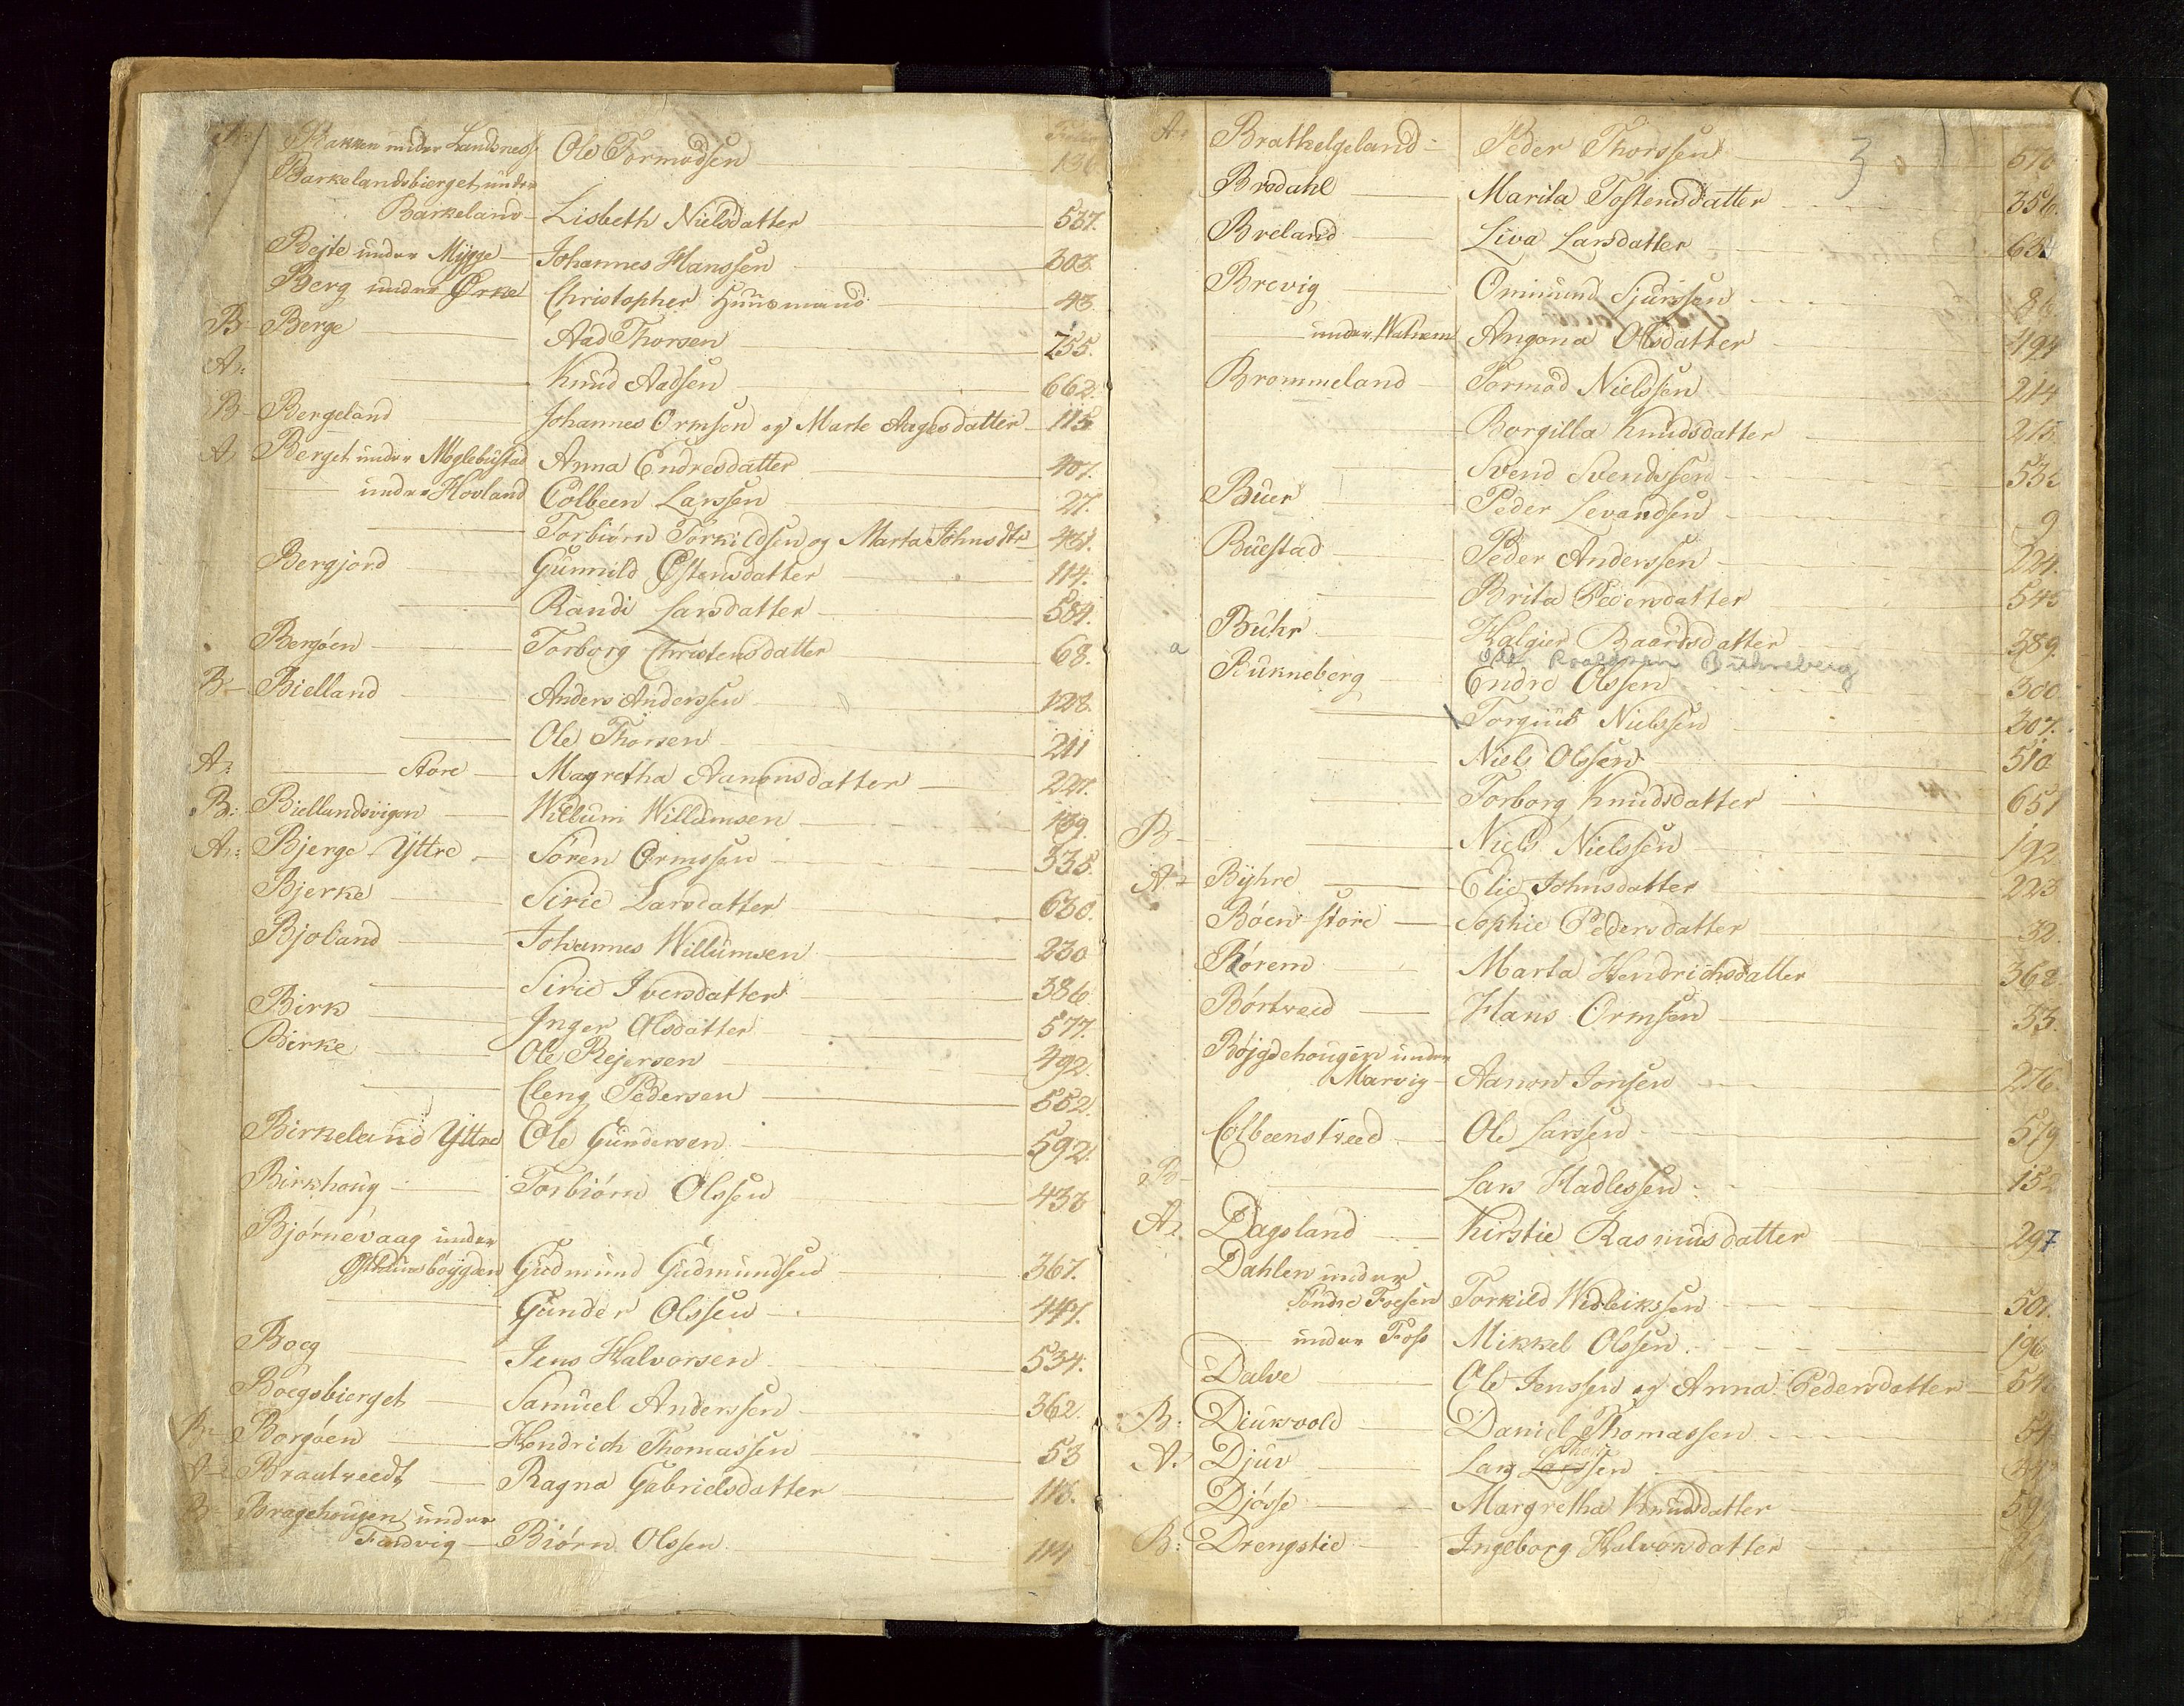 Folio
Bakken under Landsness Ole Tormodsen 136
Barkelandsbierget under
Barkeland Lisbeth Nielsdatter 537.
Bejte under Mygge Johannes Hanssen 303.
Berg under Ørke Christopher Huusmand 43.
B Berge Aad Thorsen 255.
A: Knud Aadsen 662.
B Bergeland Johannes Ormsen og Marte Aagesdatter 115
A Berget under Moglebustad Anna Endresdatter 407.
under Hovland Colbeen Larssen 27.
Torbiørn Torkildsen og Marta Johnsdtr 431.
Bergjord Gunnild Østensdatter 114.
Randi Larsdatter 584.
Bergøen Torborg Christensdatter 68.
B Bielland Anders Anderssen 128.
Ole Thorsen 211
A: Store Magretha Aanonsdatter 227.
B: Biellandsvigen Willum Willumsen 139.
A: Bjerge Yttre Søren Ormssen 335.
Bjerke Sirie Larsdatter 630.
Bjoland Johannes Willumsen 230
Sirie Iversdatter 386.
Birk Inger Olsdatter 577.
Birke Ole Rejersen 492.
Cleng Pedersen 552.
Birkeland Yttre Ole Gundersen 592.
Birkhoug Torbiørn Olssen 433
Bjørnevaag under
Østhuusbøygden Gudmund Gudmundsen 367.
Gunder Olssen 447.
Boeg Jens Halvorsen 534.
Boegsbierget Samuel Anderssen 362.
B Borgøen Hendrich Thomassen 53
A Brautveedt Ragna Gabrielsdatter 116.
B Bragehougen under
Fandvig Biørn Olssen 114
A: Brathelgeland Peder Thorssen 3 670
Brodahl Marita Tostensdatter 356.
Breland Liva Larsdatter 634
Brevig Ommund Sjurssen 86
under Watnem Angona Olsdatter 494
Brommeland Tormod Nielssen 214
Borgilla Knudsdatter 215.
Svend Svendssen 535
Buer Peder Levandsen 9
Buestad Peder Anderssen 224.
Brita Pedersdatter 545
Buhr Halgier Baardsdatter 389.
a Ole Roaldsen Buhneberg
Bukneberg Endre Olssen 300
Torgius Nielssen 307.
Niels Olssen 510
Torborg Knudsdatter 651
B Niels Nielssen 192
A Byhre Elie Johnsdatter 223
Bøen store Sophie Pedersdatter 32.
Børem Marta Hendrichsdatter 362.
Børtveid Hans Ormsen 33.
Bøjgdehougen under
Marvig Aanon Jonsen 276.
Colbeenstveed Ole Larssen 579
B Lars Hadlessen 152
A: Dagsland Kirstie Rasmusdatter 297
Dahlen under
Søndre Foesen Torkild Widbikssen 501.
under Foss Mikkel Olssen 196
Dalve Ole Jenssen og Anna Pedersdatter 54
B: Diukvold Daniel Thomassen 54
A: Djuv Lars Larssen
Djøvse Margretha Knudsdatter 59
B: Drengstie Ingeborg Halvorsdatter